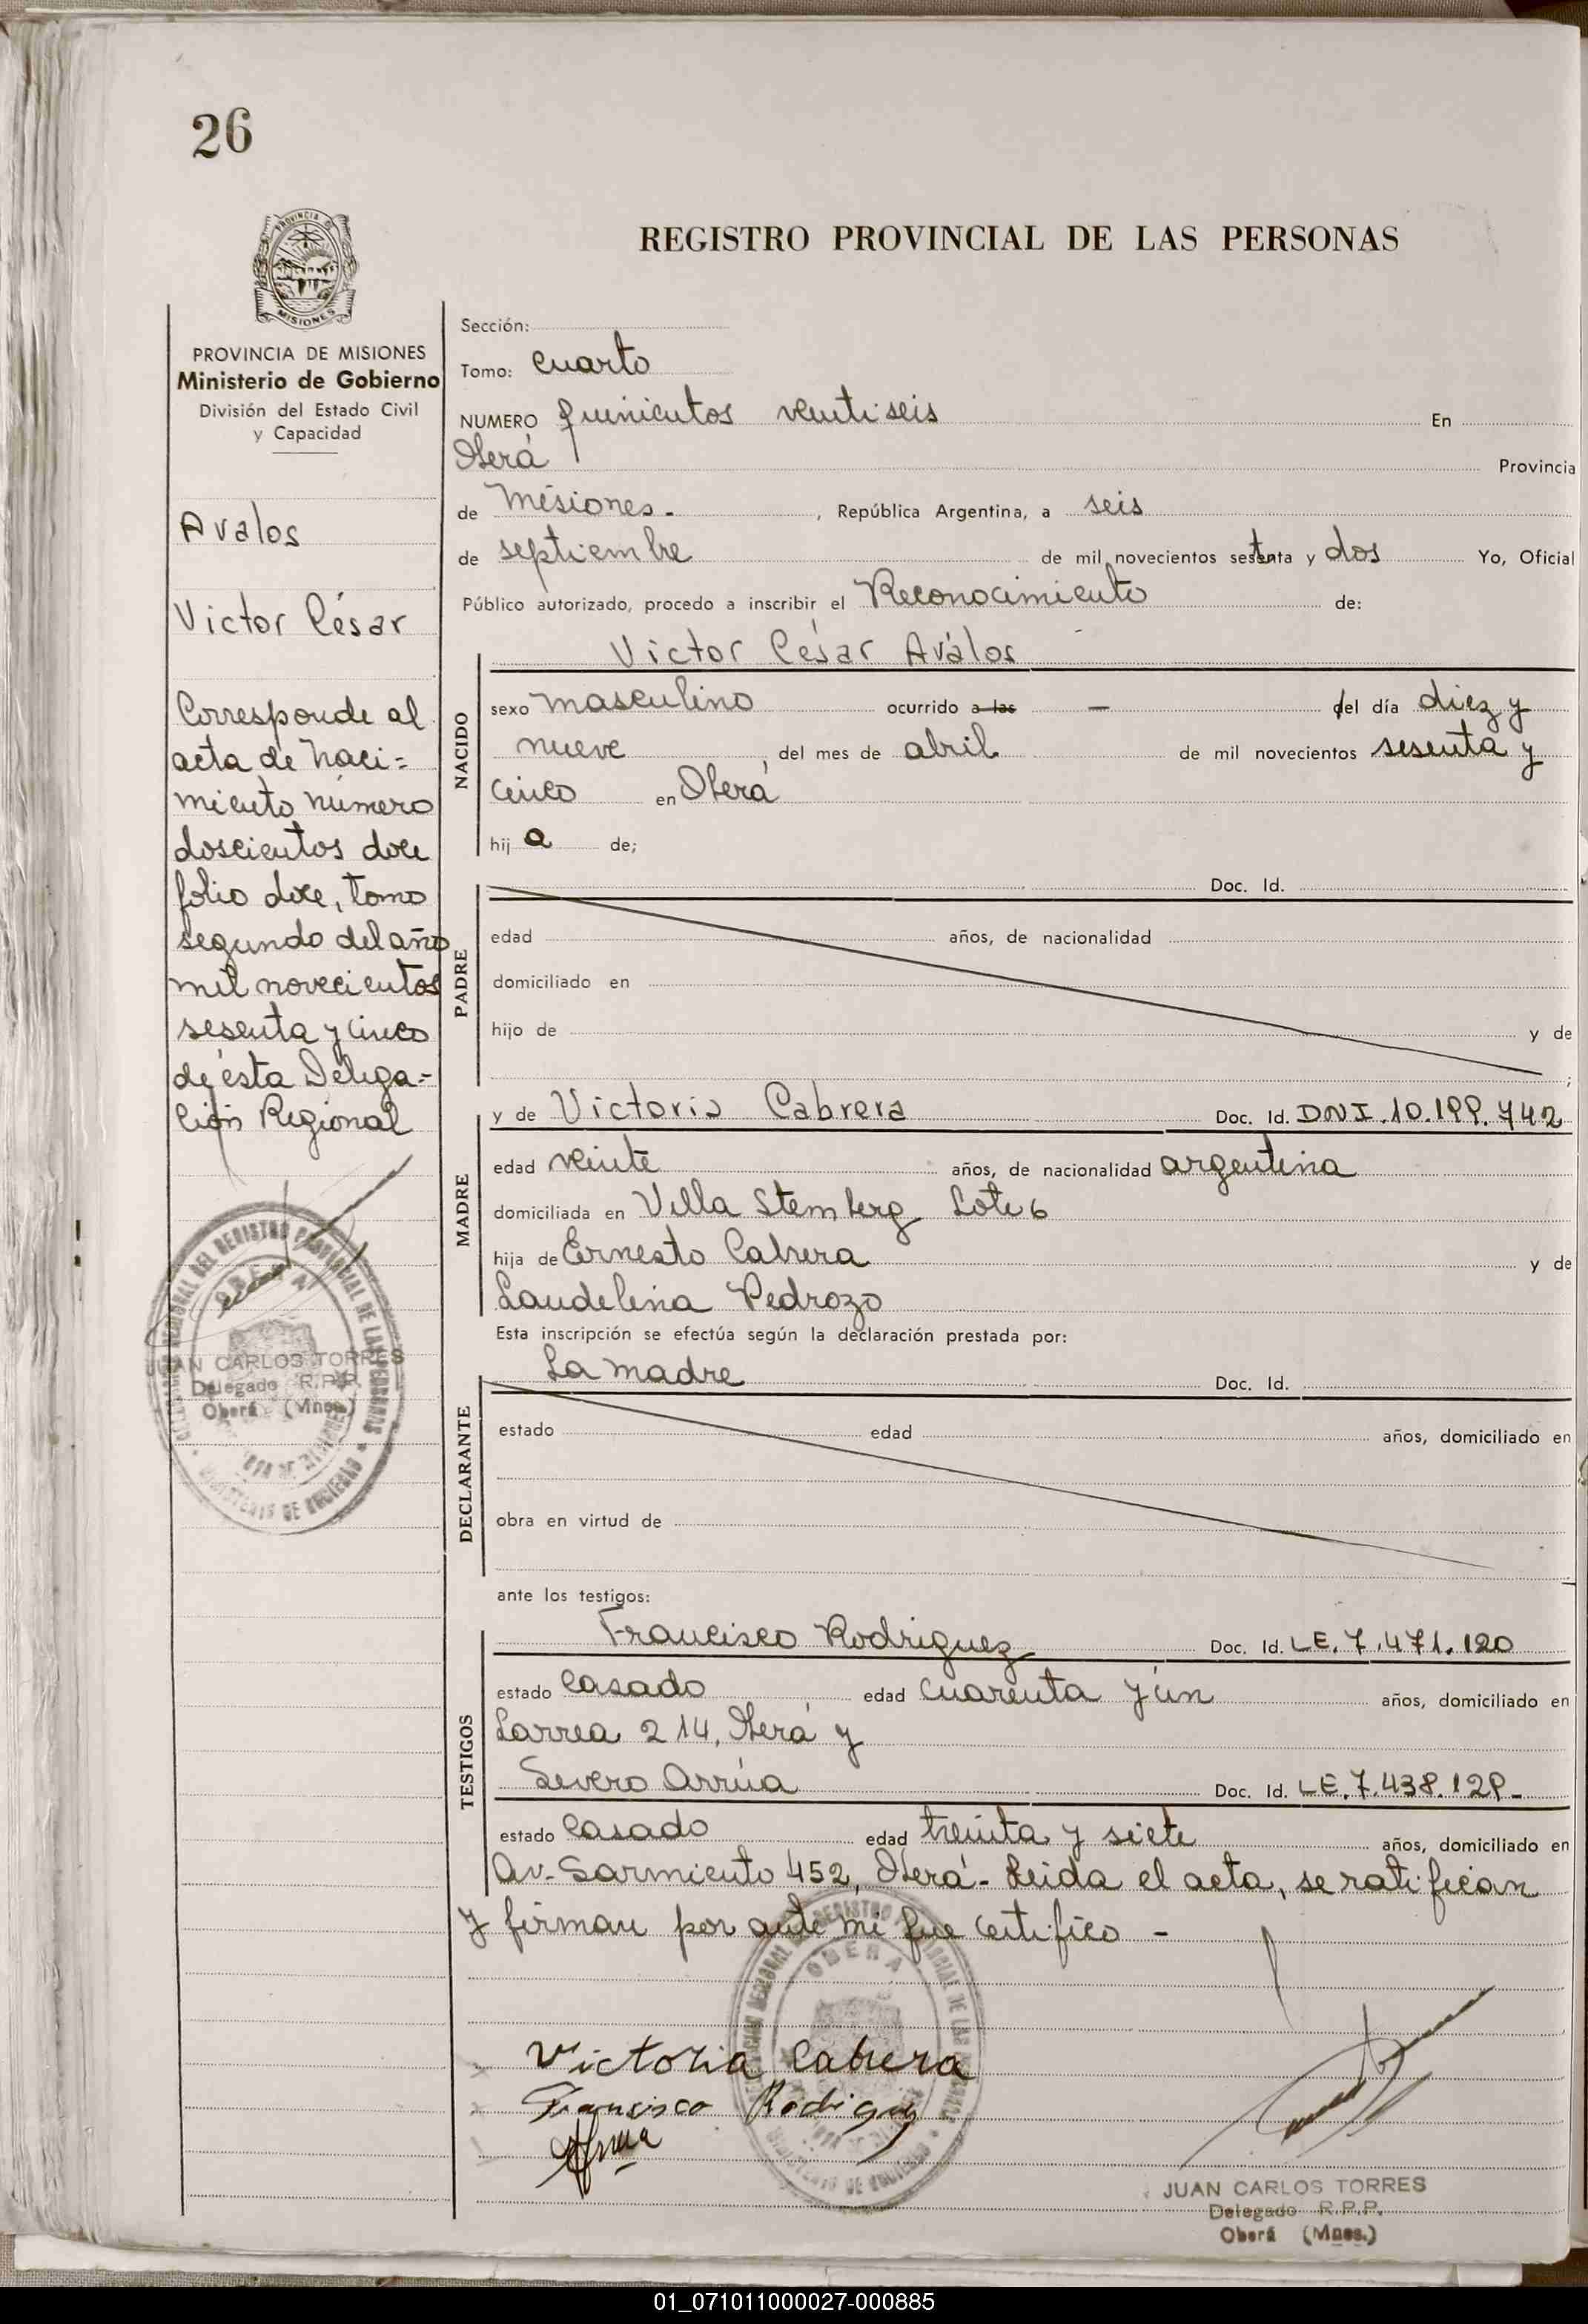 26
REGISTRO PROVINCIAL DE LAS PERSONAS
MISIONES
PROVINCIA DE MISIONES
Ministerio de Gobierno
División del Estado Civil
y Capacidad
Avalos
Victor César
Corresponde al
acta de naci=
miento número
doscientos doce
folio doce, tomo
segundo del año
mil novecientos
sesenta y cinco
de ésta Delega-
ción Regional
OBERA
JUAN CARLOS TORRES
Delegado R.P.P.
Oberá (Mnes.)
Sección:
Tomo: cuarto
NUMERO quinientos veintiseis En
Oberá Provincia
de Misiones.- , República Argentina, a seis
de septiembre de mil novecientos setenta y dos Yo, Oficial
Público autorizado, procedo a inscribir el Reconocimiento de:
Victor César Aválos
NACIDO
sexo masculino ocurrido a las — del día diez y
nueve , del mes de abril de mil novecientos sesenta y
cinco en Oberá
hij o de;
PADRE
Doc. Id.
edad años, de nacionalidad
domiciliado en
hijo de y de
;
MADRE
y de Victoria Cabrera Doc. Id. DNI.10.199.742
edad veinte años, de nacionalidad argentina
domiciliada en Villa Stemberg Lote 6
hija de Ernesto Cabrera y de
Laudelina Pedrozo
Esta inscripción se efectúa según la declaración prestada por:
DECLARANTE
La madre Doc. Id.
estado edad años, domiciliado en
obra en virtud de
ante los testigos:
TESTIGOS
Francisco Rodriguez Doc. Id. LE.7.471.120
estado casado edad cuarenta y ún años, domiciliado en
Larrea 214, Oberá y
Severo Arrúa Doc. Id. LE.7.438.129-
estado casado edad treinta y siete años, domiciliado en
Av. Sarmiento 452, Oberá- Leida el acta, se ratifican
y firman por ante mi que certifico -
OBERA
Victoria Cabrera
Francisco Rodriguez
JUAN CARLOS TORRES
Delegado R.P.P.
Oberá (Mnes.)
01_071011000027-000885